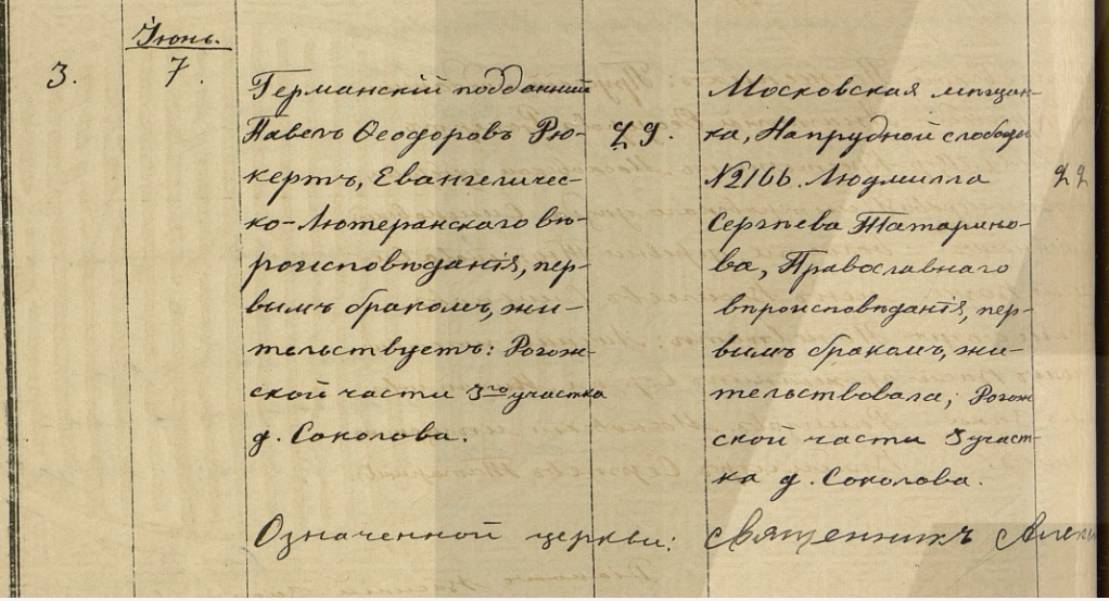 Іюнь.
3.
7.
Германскій подданный
Павелъ Ѳеодоровъ Рю-
кертъ, Евангеличес-
ко-Лютеранскаго вѣ-
роисповѣданія, пер-
вымъ бракомъ, жи-
тельствуетъ: Рогож-
ской части 3го участка
д. Соколова.
29.
Московская мѣщан-
ка, Напрудной слободы
№2166. Людмилла
Сергѣева Татарино-
ва, Православнаго
вѣроисповѣданія, пер-
вымъ бракомъ, жи-
тельствовала; Рогож
ской части 3 участ-
ка д. Соколова.
22
Означенной церкви: Священникъ